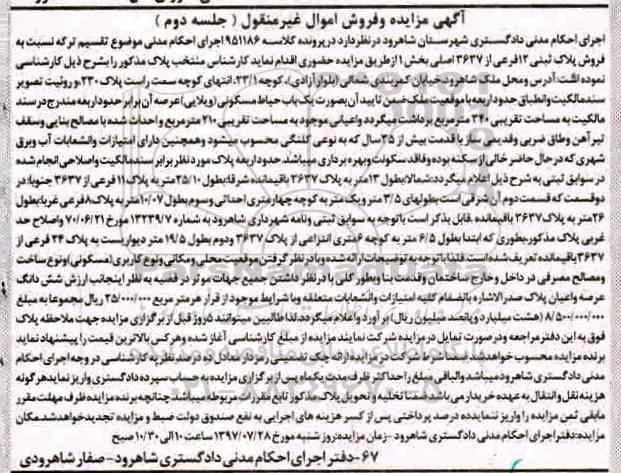 آگهی مزایده وفروش اموال غیرمنقول ( جلسه دوم )
اجرای احکام مدنی دادگستری شهرستان شاهرود درنظردارد درپرونده کلاسه ۹۵۱۱۸۶ اجرای احکام مدنی موضوع تقسیم ترکه نسبت به
فروش پلاک ثبتی ۱۲فرعی از ۳۶۳۷ اصلی بخش ۱ ازطریق مزایده حضوری اقدام نماید کارشناس منتخب پلاک مذکور را بشرح ذیل کارشناسی
نموده اشت: آدرس ومحل ملک شاهرود،خیابان کمربندی شمالی (بلوار آزادی)، کوچه ۲۳/۱، انتهای کوچه سمت راست پلاک ۲۳۰.و روئیت تصویر
سند مالکیت وانطباق حدود اربعه با موقعیت ملک ضمن تایید آن بصورت یک باب حیاط مسکونی (ویلایی) عرصه آن برابر حدود اربعه مندرج در سند
مالکیت به مساحت تقریبی ۳۴۰ مترمربع برداشت میگردد واعیانی موجود به مساحت تقریبی ۲۱۰ مترمربع و احداث شده با مصالح بنایی وسقف
تیرآهن وطاق ضربی وقدیمی ساز با قدمت بیش از ۳۵سال که به نوعی کلنگی محسوب میشود وهمچنین دارای امتیازات وانشعابات آب وبرق
شهری که در حال حاضر خالی از سکنه بوده وفاقد سکونت وبهره برداری میباشد. حدود اربعه پلاک مورد نظر برابر سند مالکیت واصلاحی انجام شده
در سوابق ثبتی به شرح ذیل اعلام میگردد:شمالا:بطول ۱۳متر به پلاک ۳۶۳۷ باقیمانده شرقا:بطول ۲۵/۱۰متر به پلاک ۱۱ فرعی از ۳۶۳۷ جنوبا: در
دوقسمت که قسمت دوم آن شرقی است بطولهای ۳/۵ متر ویک متر به کوچه چهارمتری احداثی وسوم بطول ۱۰/۰۷متر به پلاک۸فرعی غربا:بطول
۲۶متر به پلاک ۳۶۳۷ باقیمانده .قابل بذکر است باتوجه به سوابق ثبتی ونامه شهرداری شاهرود به شماره ۱۳۲۳۹/۷ مورخ ۷۰/۰۶/۲۱ واصلاح حد
غربی پلاک مذکور،بطوری که ابتدا بطول ۶/۵ متر به کوچه ۶متری انتزاعی از پلاک ۳۶۳۷ ودوم بطول ۱۹/۵ متر دیواریست به پلاک ۲۴ فرعی از
۳۶۳۷ باقیمانده تعریف شده است. فلذا باتوجه به توضیحات ارائه شده وبا در نظر گرفتن موقعیت محلی ومکانی ونوع کاربری (مسکونی) ونوع ساخت
ومصالح مصرفی در داخل وخارج ساختمان وقدمت بنا وبطور کلی با در نظر داشتن جمیع جهات موثر در قضیه به نظر اینجانب ارزش شش دانگ
عرصه واعیان پلاک صدرالاشاره باانضمام کلیه امتیازات وانشعابات متعلقه وبا شرایط موجود از قرار هر متر مربع ۲۵/۰۰۰/۰۰۰ ریال مجموعا به مبلغ
۸/۵۰۰/۰۰۰/۰۰۰ (هشت میلیارد و پانصد میلیون ریال) برآورد واعلام میگردد.لذا طالبین میتوانند ۵روز قبل از برگزاری مزایده جهت ملاحظه پلاک
فوق به این دفتر مراجعه ودر صورت تمایل در مزایده شرکت نمایند مزایده از مبلغ کارشناسی آغاز شده وهرکس بالاترین قیمت را پیشنهاد نماید
برنده مزایده محسوب خواهد شد ضمنا شرط شرکت در مزایده ارائه چک تضمینی رمزدار معادل ده درصد نظریه کارشناسی در وجه اجرای احکام
مدنی دادگستری شاهرود میباشد والباقی مبلغ را حداکثر ظرف مدت یکماه پس از برگزاری مزایده به حساب سپرده دادگستری واریز نماید هرگونه
هزینه نقل وانتقال به عهده خریدار می باشد.ضمنا تخلیه و تحویل پلاک مذکور تابع مقررات مربوطه میباشد.چنانچه برنده مزایده ظرف مهلت مقرر
مابقی ثمن مزایده را واریز ننماید ده درصد پرداختی پس از کسر هزینه های اجرایی به نفع صندوق دولت ضبط و مزایده تجدید خواهد شد.مکان
مزایده:دفتر اجرای احکام مدنی دادگستری شاهرود -زمان مزایده:روز شنبه مورخ ۱۳۹۷/۰۷/۲۸ ساعت ۱۰ الی ۱۰/۳۰ صبح
۶۷-دفتر اجرای احکام مدنی دادگستری شاهرود-صفار شاهرودی